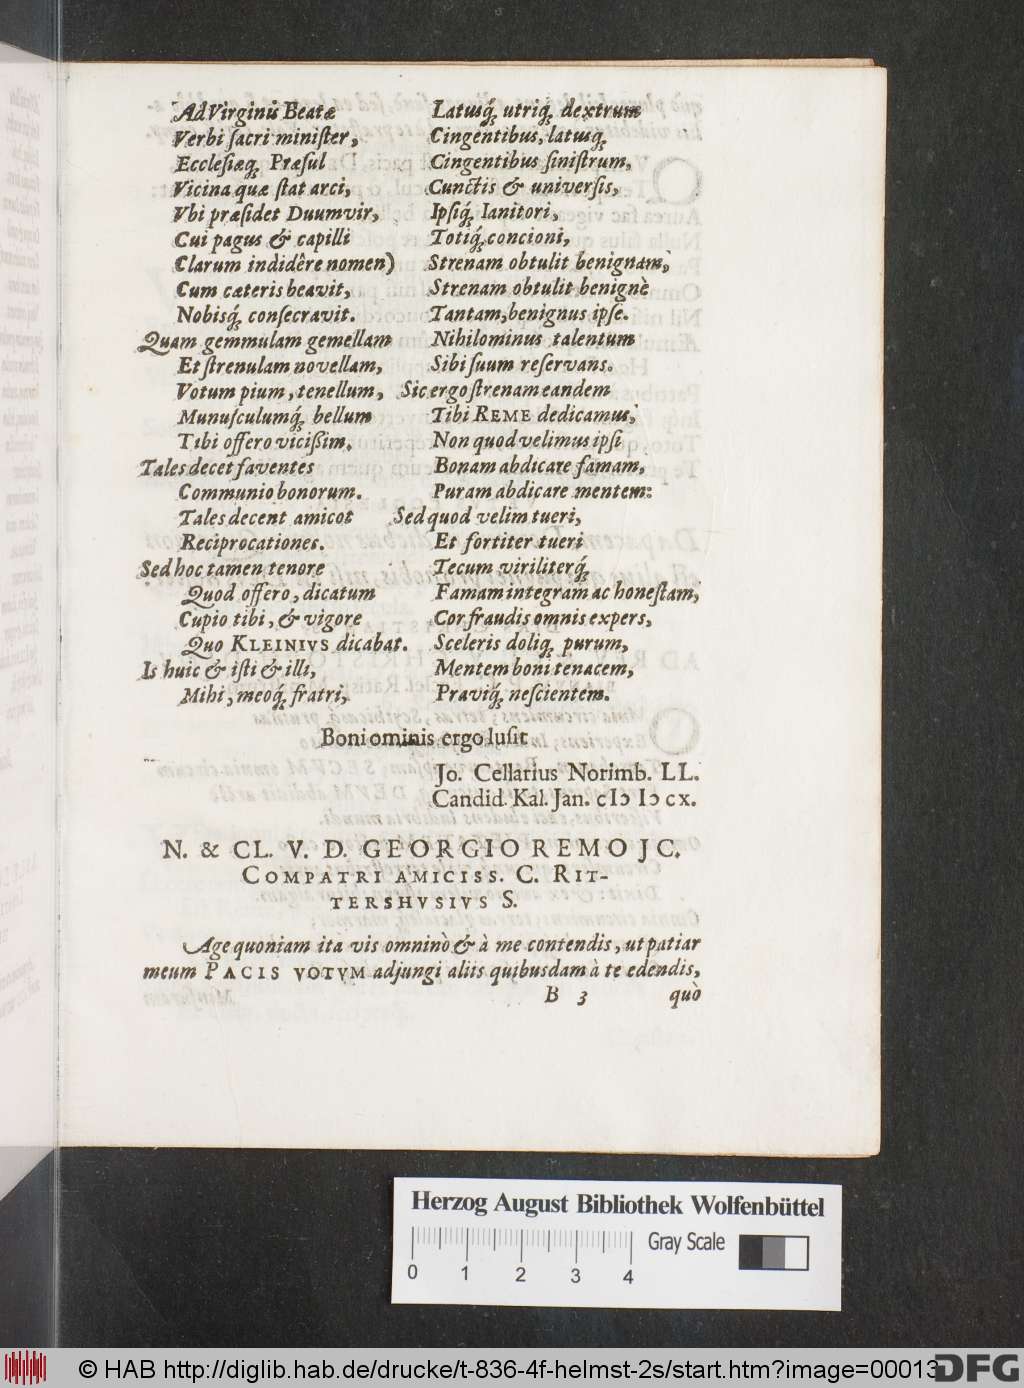 Ad Virginis Beatæ
Verbi ſacri miniſter,
Eccleſiæq́; Præſul
Vicina quæ ſtat arci,
Vbi præſidet Duumvir,
Cui pagus & capilli
Clarum indidêre nomen)
Cum cæteris beavit,
Nobisq́; conſecravit.
Quam gemmulam gemellam
Et ſtrenulam novellam,
Votum pium, tenellum,
Munuſculumq́; bellum
Tibi offero viciſſim.
Tales decet faventes
Communio bonorum.
Tales decent amicos
Reciprocationes.
Sed hoc tamen tenore
Quod offero, dicatum
Cupio tibi, & vigore
Quo KLEINIVS dicabat.
Is huic & iſti & illi,
Mihi, meoq́; fratri,
Latusq́; utriq́; dextrum
Cingentibus, latusq́;
Cingentibus ſiniſtrum,
Cunctis & univerſis,
Ipſiq́; Ianitori,
Totiq́; concioni,
Strenam obtulit benignam,
Strenam obtulit benignè
Tantam, benignus ipſe.
Nihilominus talentum
Sibi ſuum reſervans.
Sic ergo ſtrenam eandem
Tibi REME dedicamus,
Non quod velimus ipſi
Bonam abdicare famam,
Puram abdicare mentem:
Sed quod velim tueri,
Et fortiter tueri
Tecum viriliterq́;
Famam integram ac honeſtam,
Cor fraudis omnis expers,
Sceleris doliq́; purum,
Mentem boni tenacem,
Praviq́; neſcientem.
Boni ominis ergo luſit
Jo. Cellarius Norimb. LL.
Candid. Kal. Jan. cIↄ Iↄ cx.
N. & CL. V. D. GEORGIO REMO JC.
COMPATRI AMICISS. C. RIT-
TERSHVSIVS S.
Age quoniam ita vis omninò & à me contendis, ut patiar
meum PACIS VOTVM adjungi aliis quibusdam à te edendis,
B 3 quò
Herzog August Bibliothek Wolfenbüttel
Gray Scale
0 1 2 3 4
© HAB http://diglib.hab.de/drucke/t-836-4f-helmst-2s/start.htm?image=00013
DFG